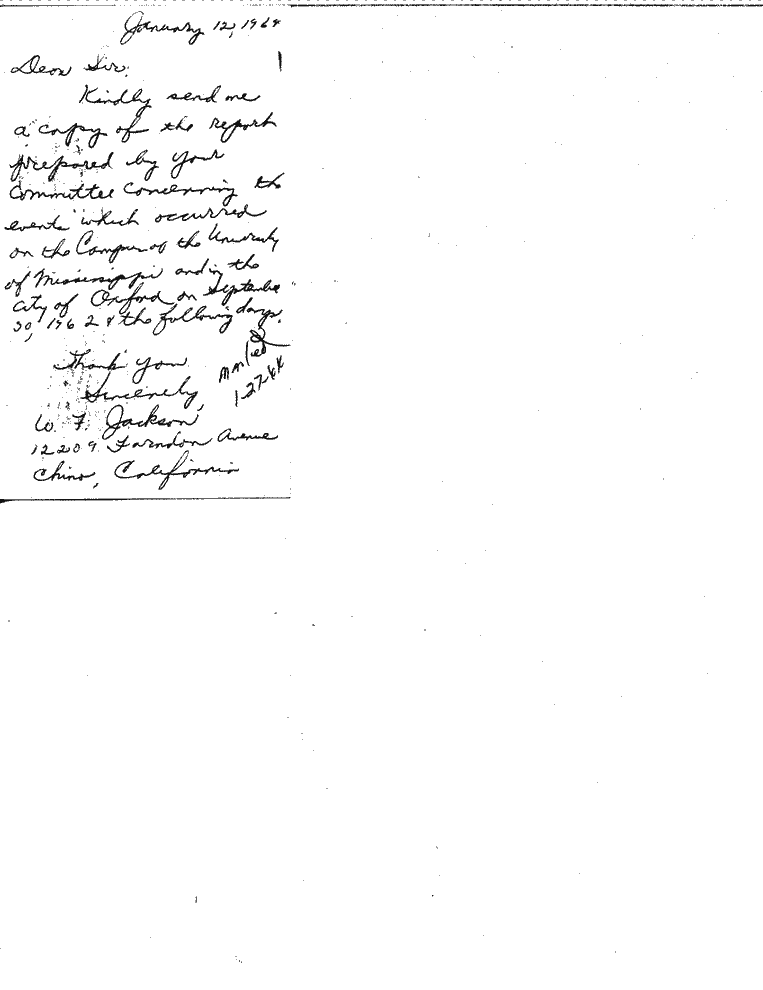 January 12, 1964
Dear Sir:
Kindly send me
a copy of the report
prepared by your
Committee Concerning the
events which occurred
on the Campus of the University
of Mississippi and in the
City of Oxford on September
30, 1962 & the following days.
Thank you
Sincerely,
W. F. Jackson
12209 Farndon Avenue
Chino, California
1-27-64